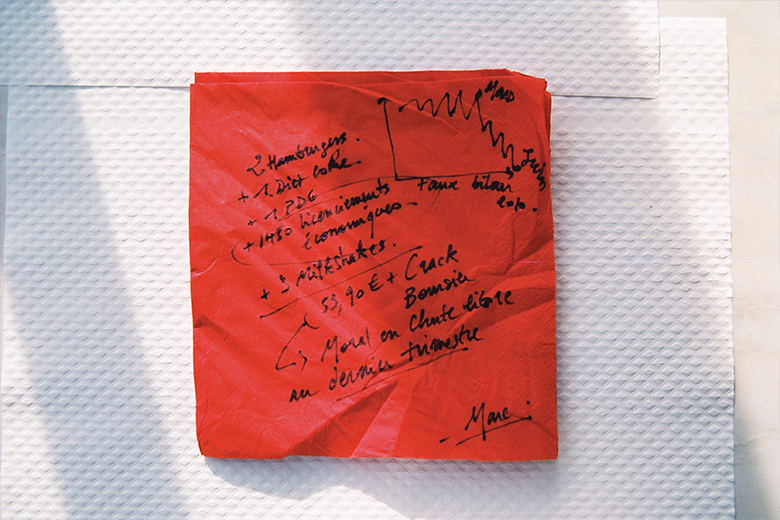 2 Hamburgers.
+ 1 Diet Coke.
+ 1 PDG
+ 1430 licenciements
économiques.
+ 3 Milkshakes.
53,90 € + Crack
Boursier
Moral en chute libre
au dernier trimestre
Mars
faux bilan
Marc.